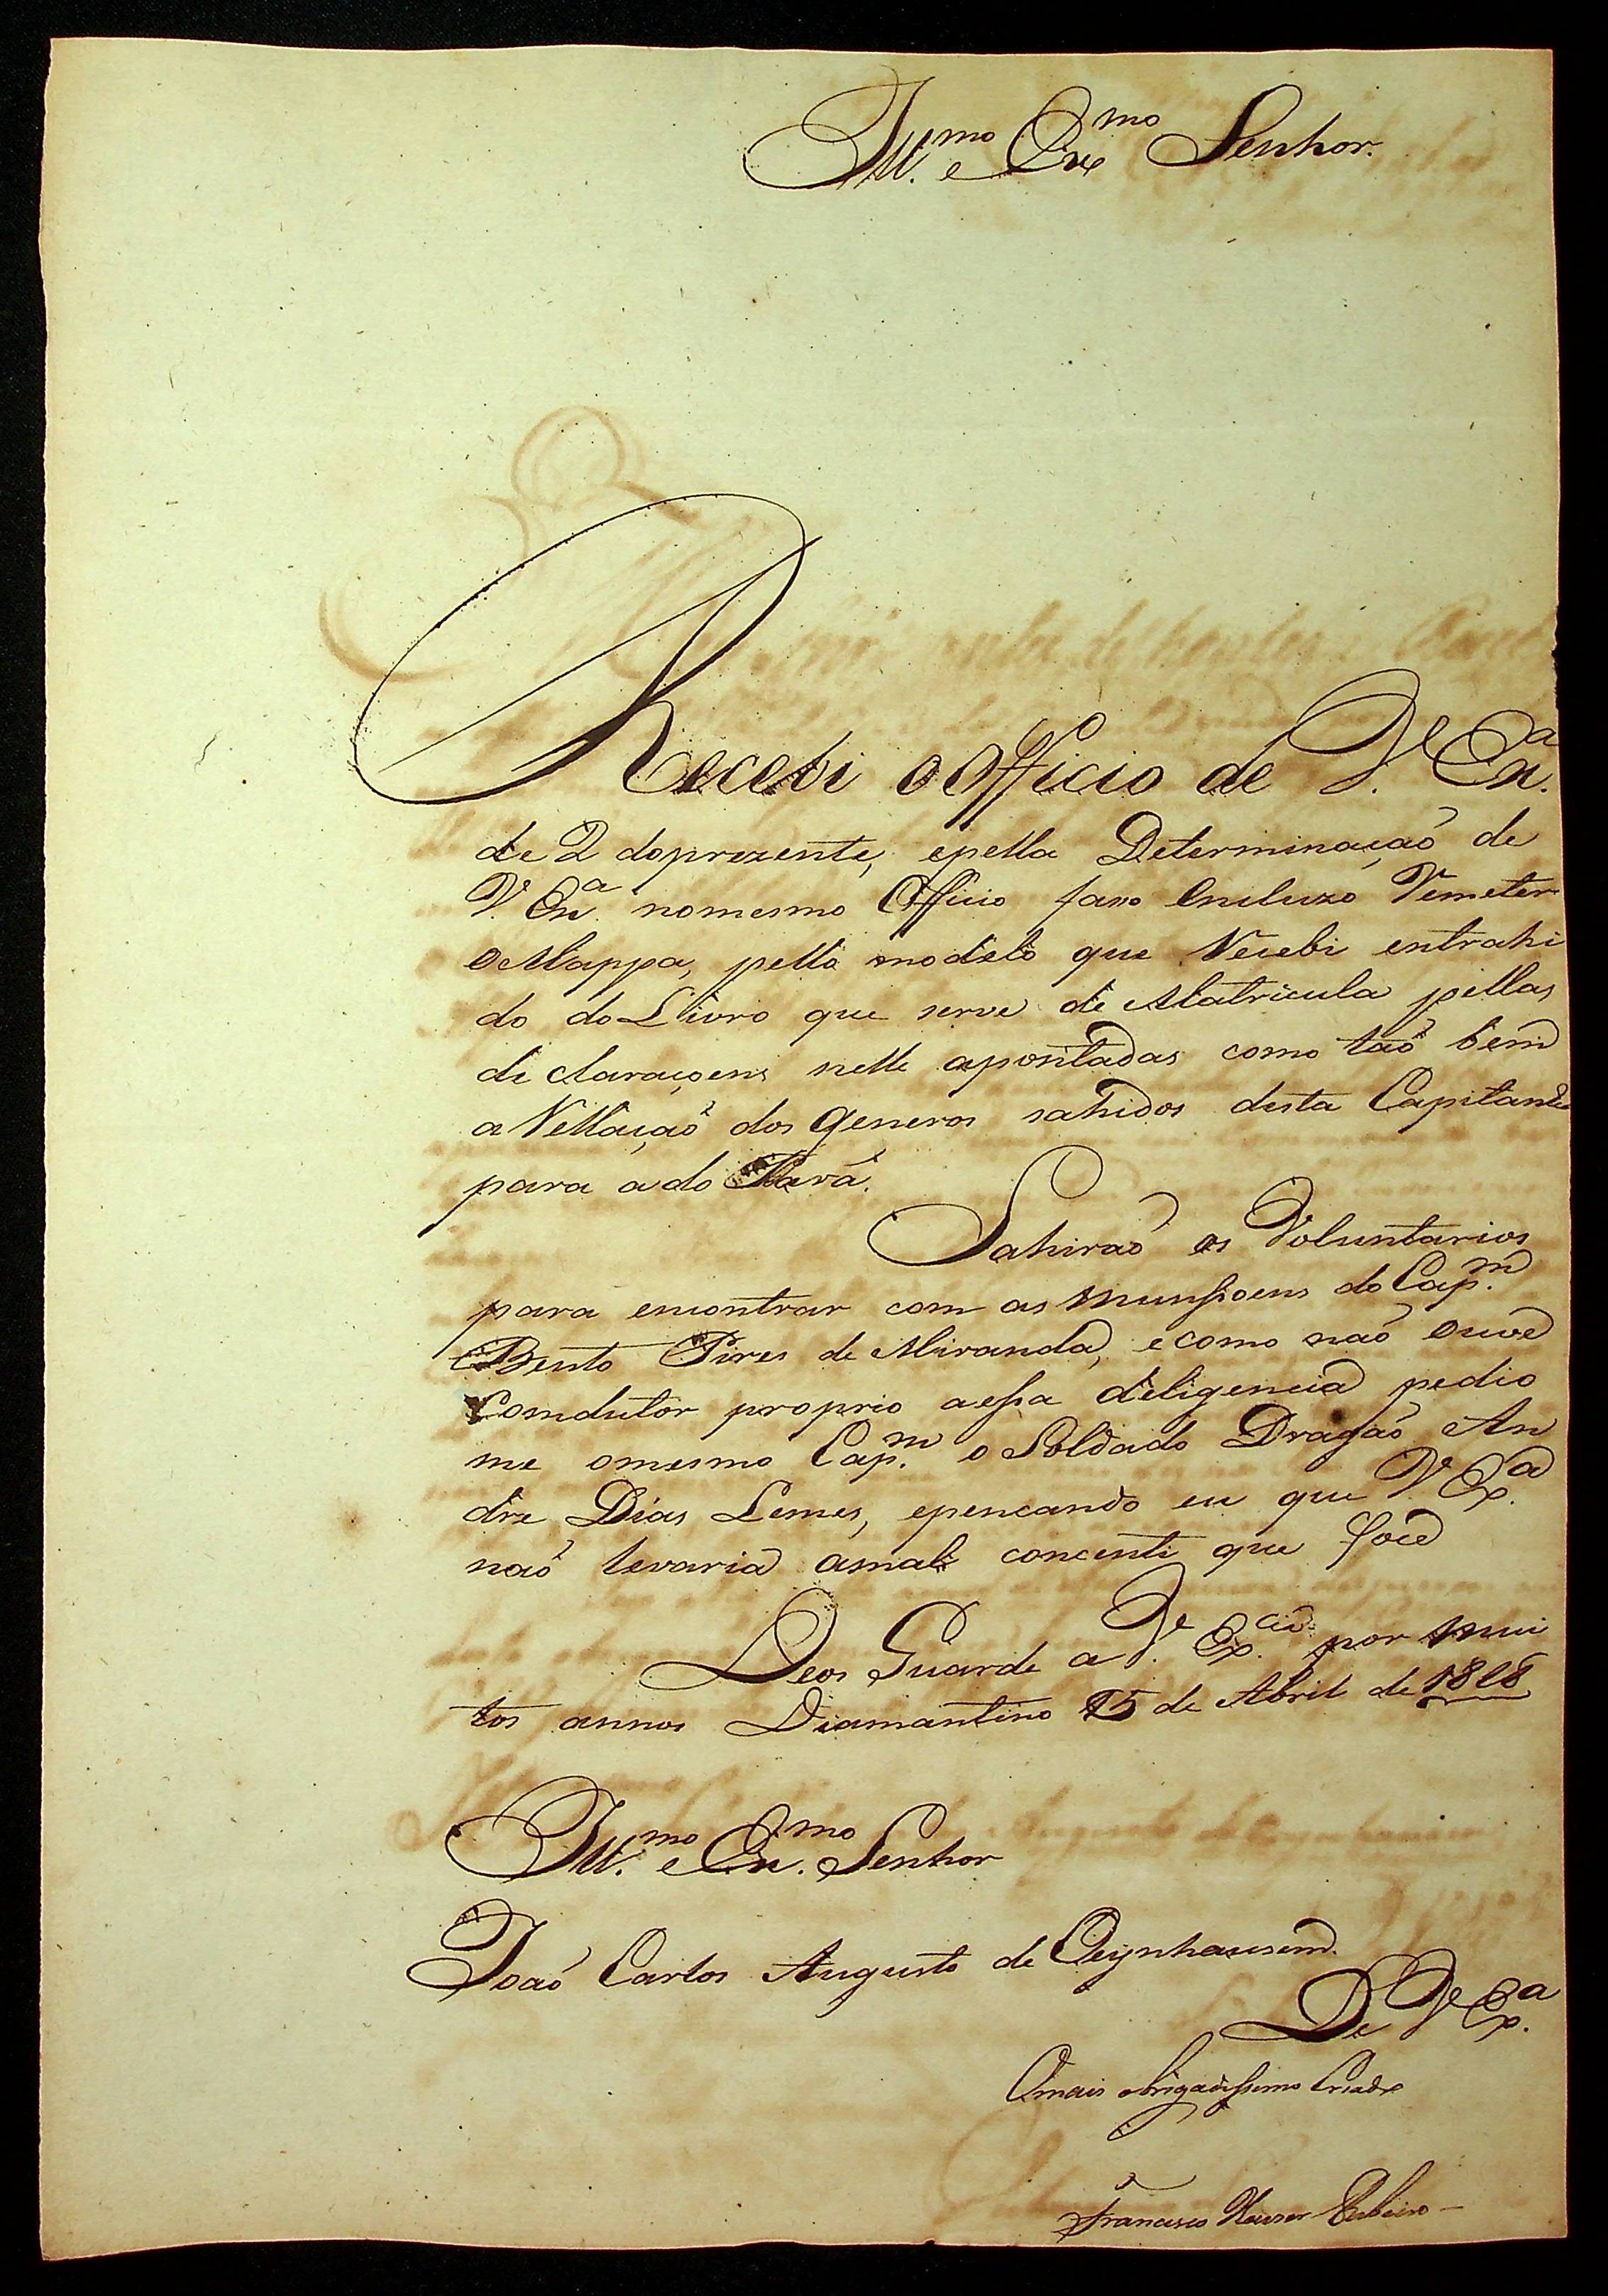 Ill.mo e Ex.mo Senhor.
Recebi o Officio de V. Ex.a
de 2 do prezente, e pella Determinação de
V. Ex.a no mesmo Officio faso Encluzo Remeter
o Mappa, pello modelo que Recebi extrahi
do do Livro que serve de Matricula pellas
declaraçoens nelle apontadas como tão bem
a Rellação dos Generos sahidos desta Capitania
para a do Pará.
Sahirão os Voluntarios
para encontrar com as Munsoens do Cap.m
Bento Pires de Miranda, e como não ouve
Comdutor proprio a essa deligencia pedio
me o mesmo Cap.m o Soldado Dragão An
dre Dias Lemes, e pencando eu que V. Ex.a
não levaria a mal concenti que foce
Deos Guarde a V. Ex.cia por mui
tos annos Diamantino 15 de Abril de 1818
Ill.mo e Ex.mo Senhor
João Carlos Augusto de Oeynhausem.
De V. Ex.a
O mais obrigadissimo Criado
Francisco Xavier Ribeiro